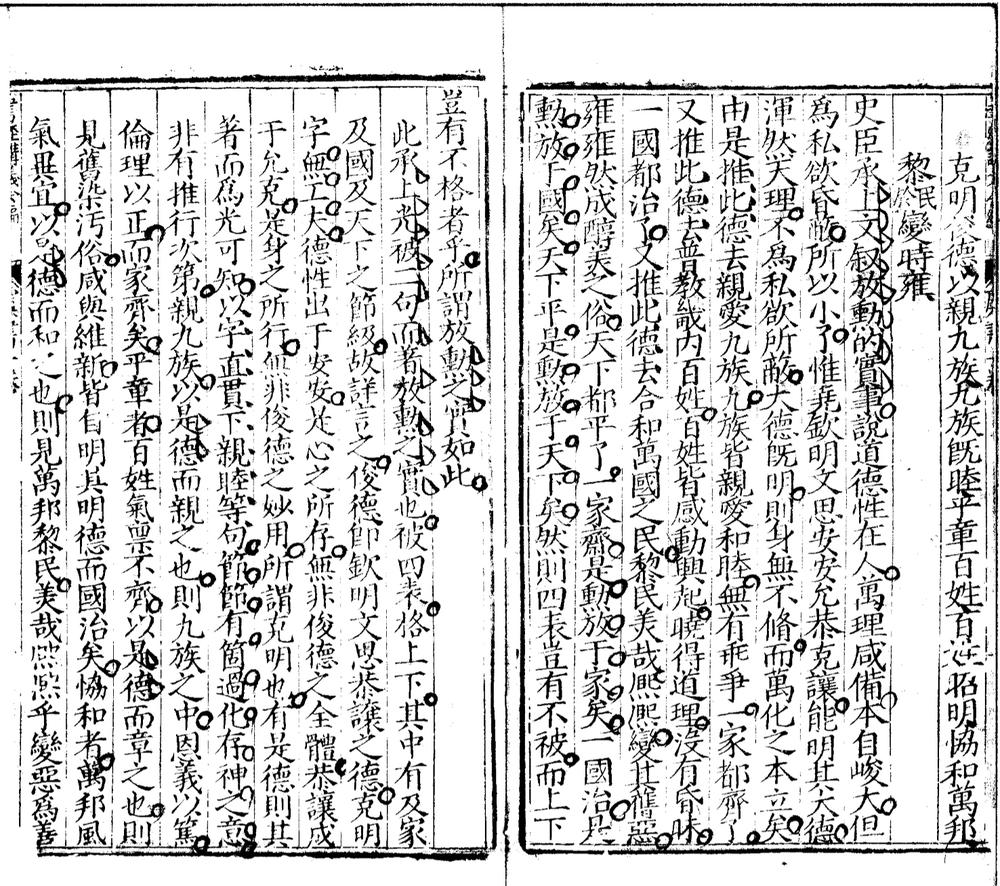 克明俊德以親九族九族既睦平章百姓百姓昭明協和萬邦
黎民於變時雍
史臣承上文叙放勳的實事說道德性在人萬理咸備本自峻大但
為私欲昏蔽所以小了惟堯欽明文思安安允恭克讓能明其大德
渾然天理不為私欲所蔽大德既明則身無不脩而萬化之本立矣
由是推此德去親愛九族九族皆親愛和睦無有乖爭一家都齊了
又推此德去普教畿內百姓百姓皆感動興起曉得道理沒有昏昧
一國都治了又推此德去合和萬國之民黎民美哉熈熈變其舊惡
雍雍然成醇美之俗天下都平了一家齊是勳放于家矣一國治是
勳放于國矣天下平是勳放于天下矣然則四表豈有不被而上下
豈有不格者乎所謂放勳之實如此
此承上光被二句而著放勳之實也被四表格上下其中有及家
及國及天下之節級故詳言之俊德即欽明文思恭讓之德克明
字無工夫德性出于安安是心之所存無非俊德之全體恭讓成
于允克是身之所行無非俊德之妙用所謂克明也有是德則其
著而為光可知以字直貫下親睦等句節節有箇過化存神之意
非有推行次第親九族以是德而親之也則九族之中恩義以篤
倫理以正而家齊矣平章者百姓氣禀不齊以是德而章之也則
見舊染汚俗咸與維新皆自明其明德而國治矣恊和者萬邦風
氣異宜以是德而和之也則見萬邦黎民美哉熈熈乎變惡為善